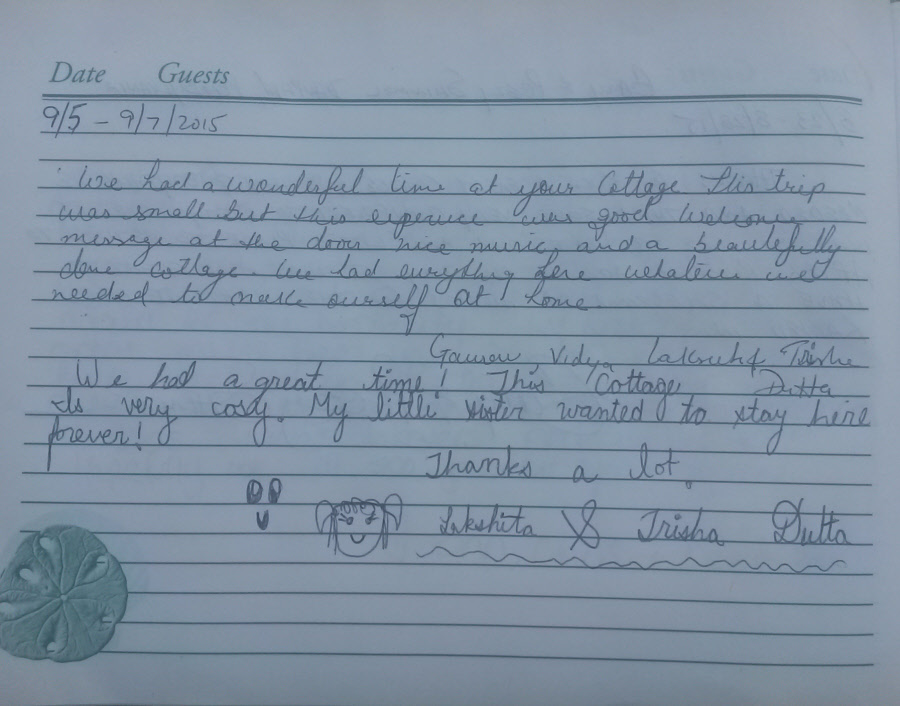 Date Guests
9/5 - 9/7/2015
We had a wonderful time at your Cottage This trip
was small but this experience was good Welcome
message at the door nice music, and a beautefully
done cottage. We had everything here whatever we
needed to make ourself at home
Gaurav, Vidya, Trisha
We had a great time! This Cottage Dutta
Is very cosy. My little sister wanted to stay here
forever!
Thanks a lot.
Lakshita & Trisha Dutta